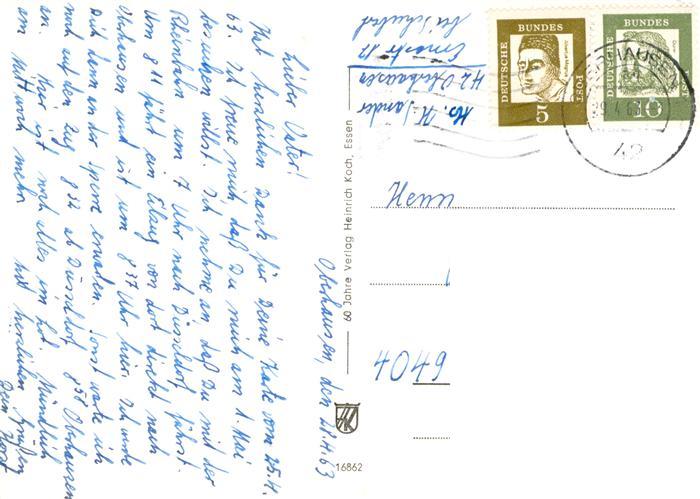 Oberhausen, den 28.4.63
Lieber Vater!
Hab herzlichen Dank für Deine Karte vom 25.4.
63. Ich freue mich, daß Du mich am 1. Mai
besuchen willst. Ich nehme an, daß Du mit der
Rheinbahn um 7 Uhr nach Düsseldorf fährst.
Um 8 11 fährt ein Eilzug von dort direkt nach
Oberhausen und ist um 8 37 Uhr hier. Ich werde
Dich dann an der Sperre erwarten. Sonst warte ich
noch auf den Zug 8 32 ab Düsseldorf 8 58 Oberhausen
an. Hier ist noch alles im Lot. Mündlich
am Mittwoch mehr. Mit herzlichen Grüßen
Dein Horst
Abs. H. Sander
42 Oberhausen
bei Schubert
DEUTSCHE BUNDESPOST
5
DEUTSCHE BUNDESPOST
10
OBERHAUSEN
29.4.63
42
Herrn
4049
60 Jahre Verlag Heinrich Koch, Essen
HK
16862